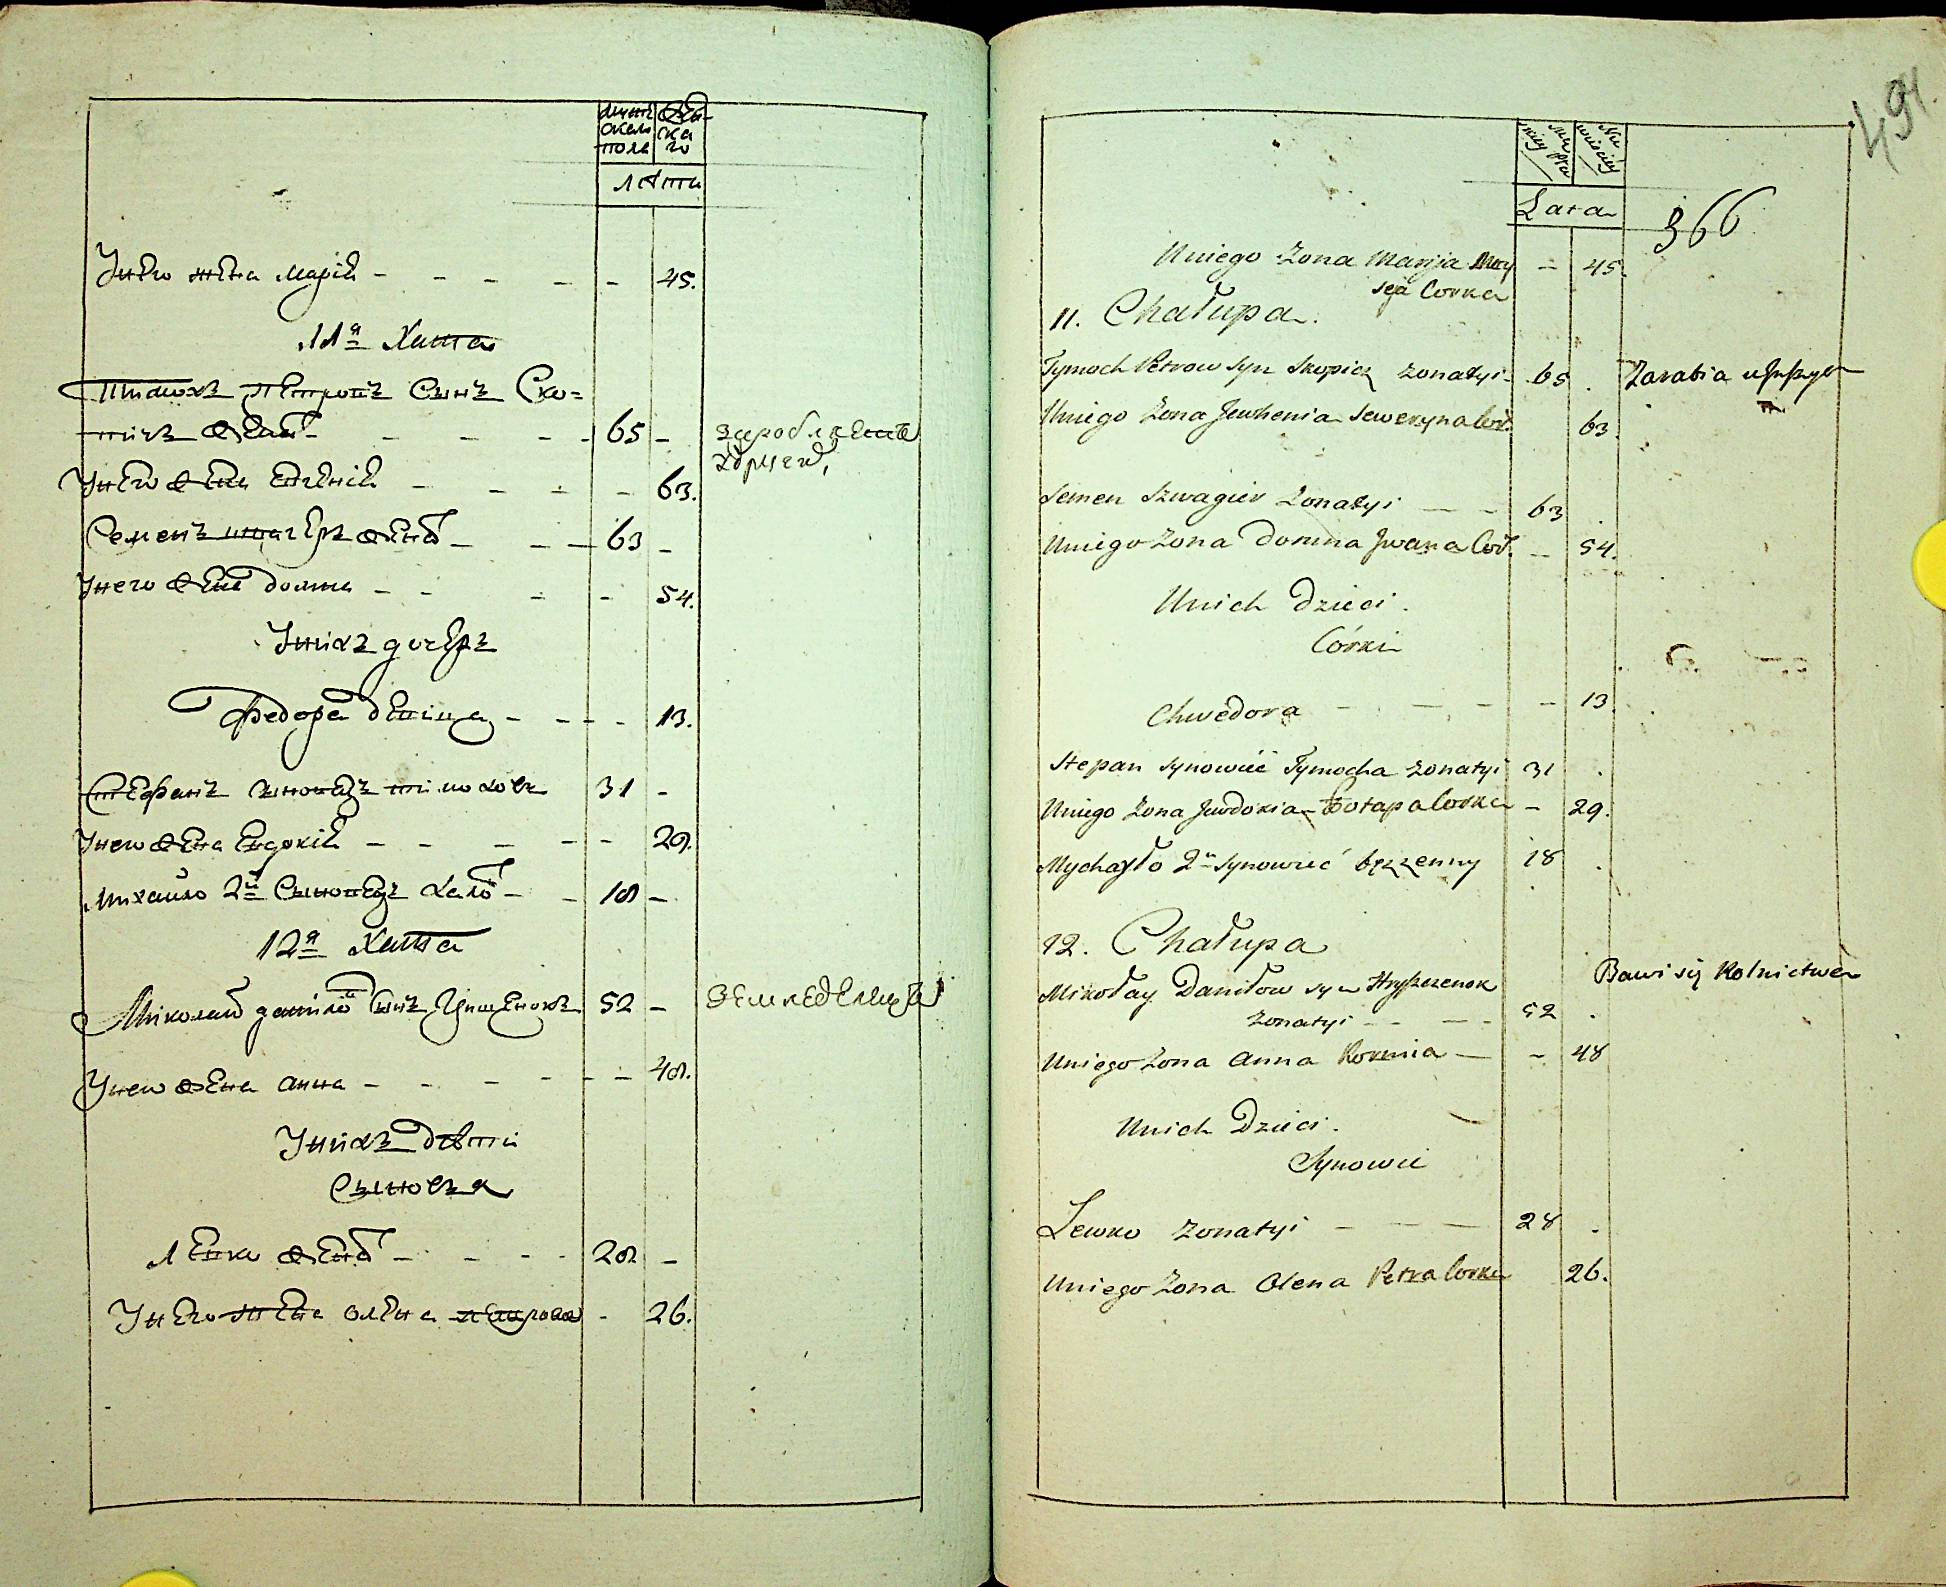 мужеска полъ
женскаго
лѣта
У него жена марія - - - - - 45.
11я Хата
Тимохъ петровъ сынъ Ско=
пичъ женат - - - - 65 -
У него жена евгенія - - - - 63.
Семенъ швагеръ женат - - - 63 -
У него жена домна - - - - 54.
У нихъ дочеръ
Федора девица - - - - 13.
Стефанъ сыновецъ тимоховъ 31 -
У него жена евдокія - - - - - 29.
михайло 2й сыновецъ холо - - 18 -
12я Хата
Миколай данилов сынъ Грищенокъ 52 -
земледелецъ
У него жена анна - - - - - - 48.
У нихъ дѣти
сыновья
Левко женат - - - - 28 -
У него жена олена петрова - 26.
494.
366
Męzkiey
Niewiściey
Lata
Uniego Zona Maryja Moy - 45.
seja Corka
11. Chałupa.
Tymoch Petrow syn Skopicz zonatyi - 65 . Zarabia
Uniego Zona Jewhenia Seweryna Cor. 63.
Semen Szwagier Zonatyi - - 63 .
Uniego Zona Domna Jwana Cor. - 54.
Unich Dzieci.
Córki
Chwedora - - - - 13.
Stepan synowiec Tymocha zonatyi 31 .
Uniego Zona Jewdokia Potapa Corka - 29.
Mychayło 2й synowieć bezzenny 18 .
12. Chałupa
Bawi się Rolnictwem
Mikołay Daniłow syn Hryszczenok
zonatyi - - - - 52 .
Uniego Zona Anna - - 48
Unich Dzieci.
Synowie
Lewko zonatyi - - - 28 .
Uniego Zona Olena Petra Corka 26.